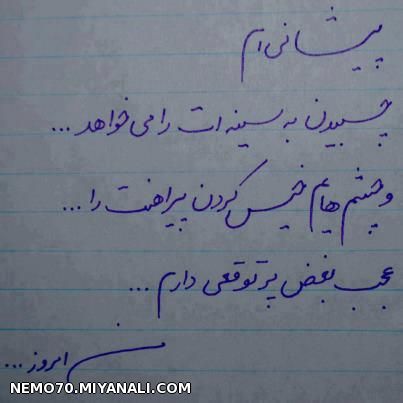 پیشانی ام
چسبیدن به سینه ات را می خواهد ...
و چشم هایم خیس کردن پیراهنت را ...
عجب بغض پر توقعی دارم ...
من امروز ...
NEMO70.MIYANALI.COM